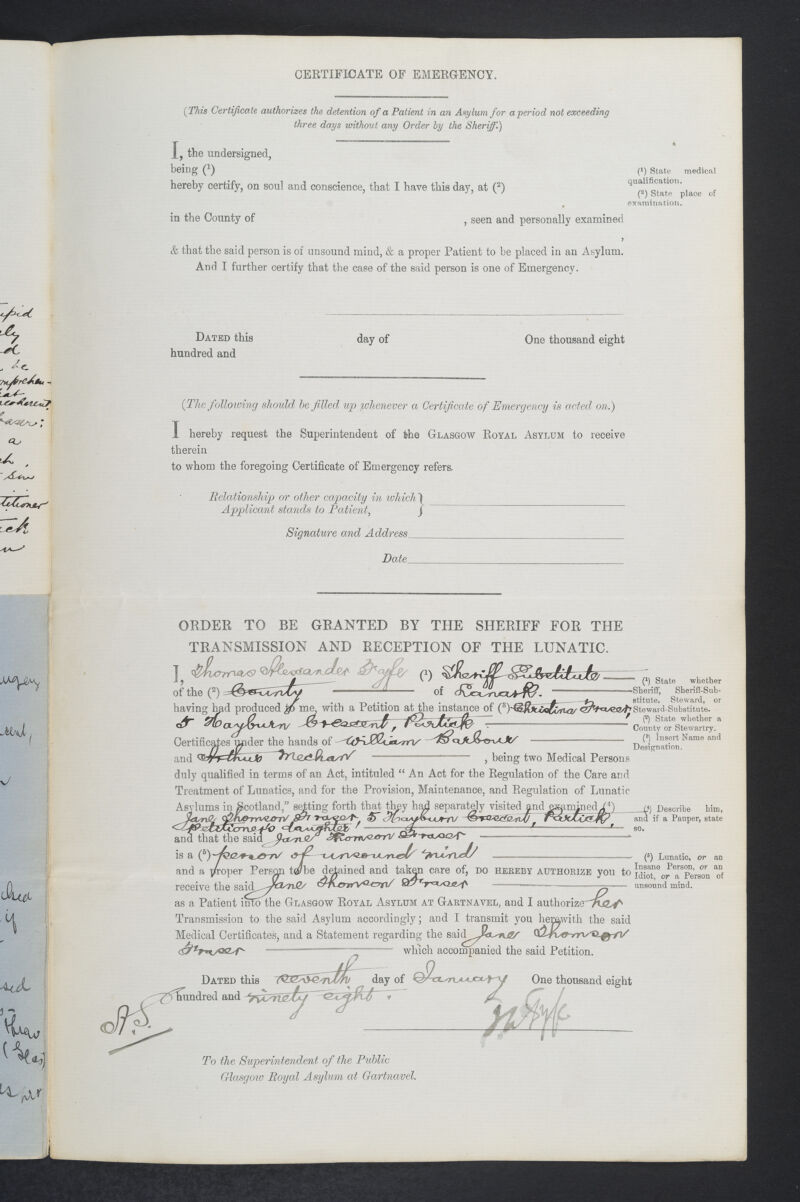 CERTIFICATE OF EMERGENCY.
(This Certificate authorizes the detention of a Patient in an Asylum for a period not exceeding
three days without any Order by the Sheriff.)
I, the undersigned,
being (¹)
hereby certify, on soul and conscience, that I have this day, at (²)
in the County of , seen and personally examined
,
& that the said person is of unsound mind, & a proper Patient to be placed in an Asylum.
And I further certify that the case of the said person is one of Emergency.
(¹) State medical
qualification.
(²) State place of
examination.
DATED this day of One thousand eight
hundred and
(The following should be filled up whenever a Certificate of Emergency is acted on.)
I hereby request the Superintendent of the GLASGOW ROYAL ASYLUM to receive
therein
to whom the foregoing Certificate of Emergency refers.
Relationship or other capacity in which
Applicant stands to Patient,
Signature and Address
Date
ORDER TO BE GRANTED BY THE SHERIFF FOR THE
TRANSMISSION AND RECEPTION OF THE LUNATIC.
I, Thomas Alexander Fyfe (¹) Sheriff Substitute
of the (²) County of Lanark.
having had produced to me, with a Petition at the instance of (³) Christina Fraser,
5 Hayburn Crescent, Partick
Certificates under the hands of William Barbour
and Arthur Mechan , being two Medical Persons
duly qualified in terms of an Act, intituled “ An Act for the Regulation of the Care and
Treatment of Lunatics, and for the Provision, Maintenance, and Regulation of Lunatic
Asylums in Scotland,” setting forth that they had separately visited and examined (⁴)
Jane Thomson Fraser, 5 Hayburn Crescent, Partick,
Petitioner's daughter,
and that the said Jane Thomson Fraser
is a (⁵) person of unsound mind
and a proper Person to be detained and taken care of, DO HEREBY AUTHORIZE you to
receive the said Jane Thomson Fraser
as a Patient into the GLASGOW ROYAL ASYLUM AT GARTNAVEL, and I authorize her
Transmission to the said Asylum accordingly; and I transmit you herewith the said
Medical Certificates, and a Statement regarding the said Jane Thomson
Fraser which accompanied the said Petition.
(¹) State whether
Sheriff, Sheriff-Sub-
stitute, Steward, or
Steward-Substitute.
(²) State whether a
County or Stewartry.
(³) Insert Name and
Designation.
(⁴) Describe him,
and if a Pauper, state
so.
(⁵) Lunatic, or an
Insane Person, or an
Idiot, or a Person of
unsound mind.
DATED this seventh day of January One thousand eight
hundred and ninety eight.
A.S.
T A Fyfe
To the Superintendent of the Public
Glasgow Royal Asylum at Gartnavel.